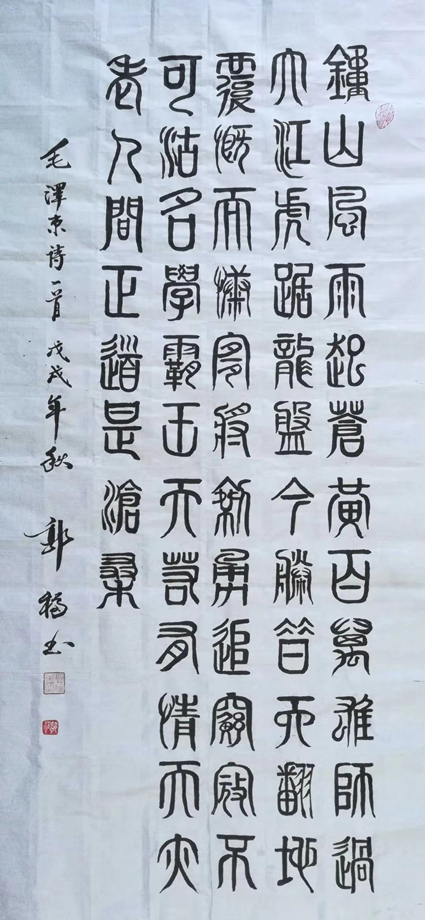 鐘山風雨起蒼黃百萬雄師過
大江虎踞龍盤今勝昔天翻地
覆慨而慷宜將剩勇追窮寇不
可沽名學霸王天若有情天亦
老人間正道是滄桑
毛澤東詩一首 戊戌年秋 郭 书